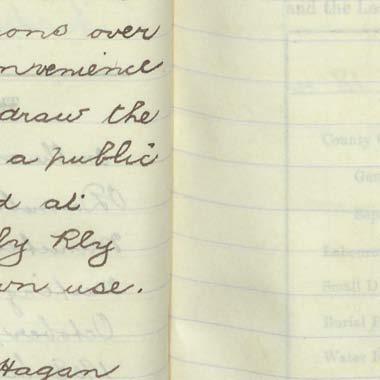 ons over
nvenience
draw the
a public
d at
by Rly
wn use.
Hagan
and the Lo
County
Gen
Laboure
Small D
Burial
Water